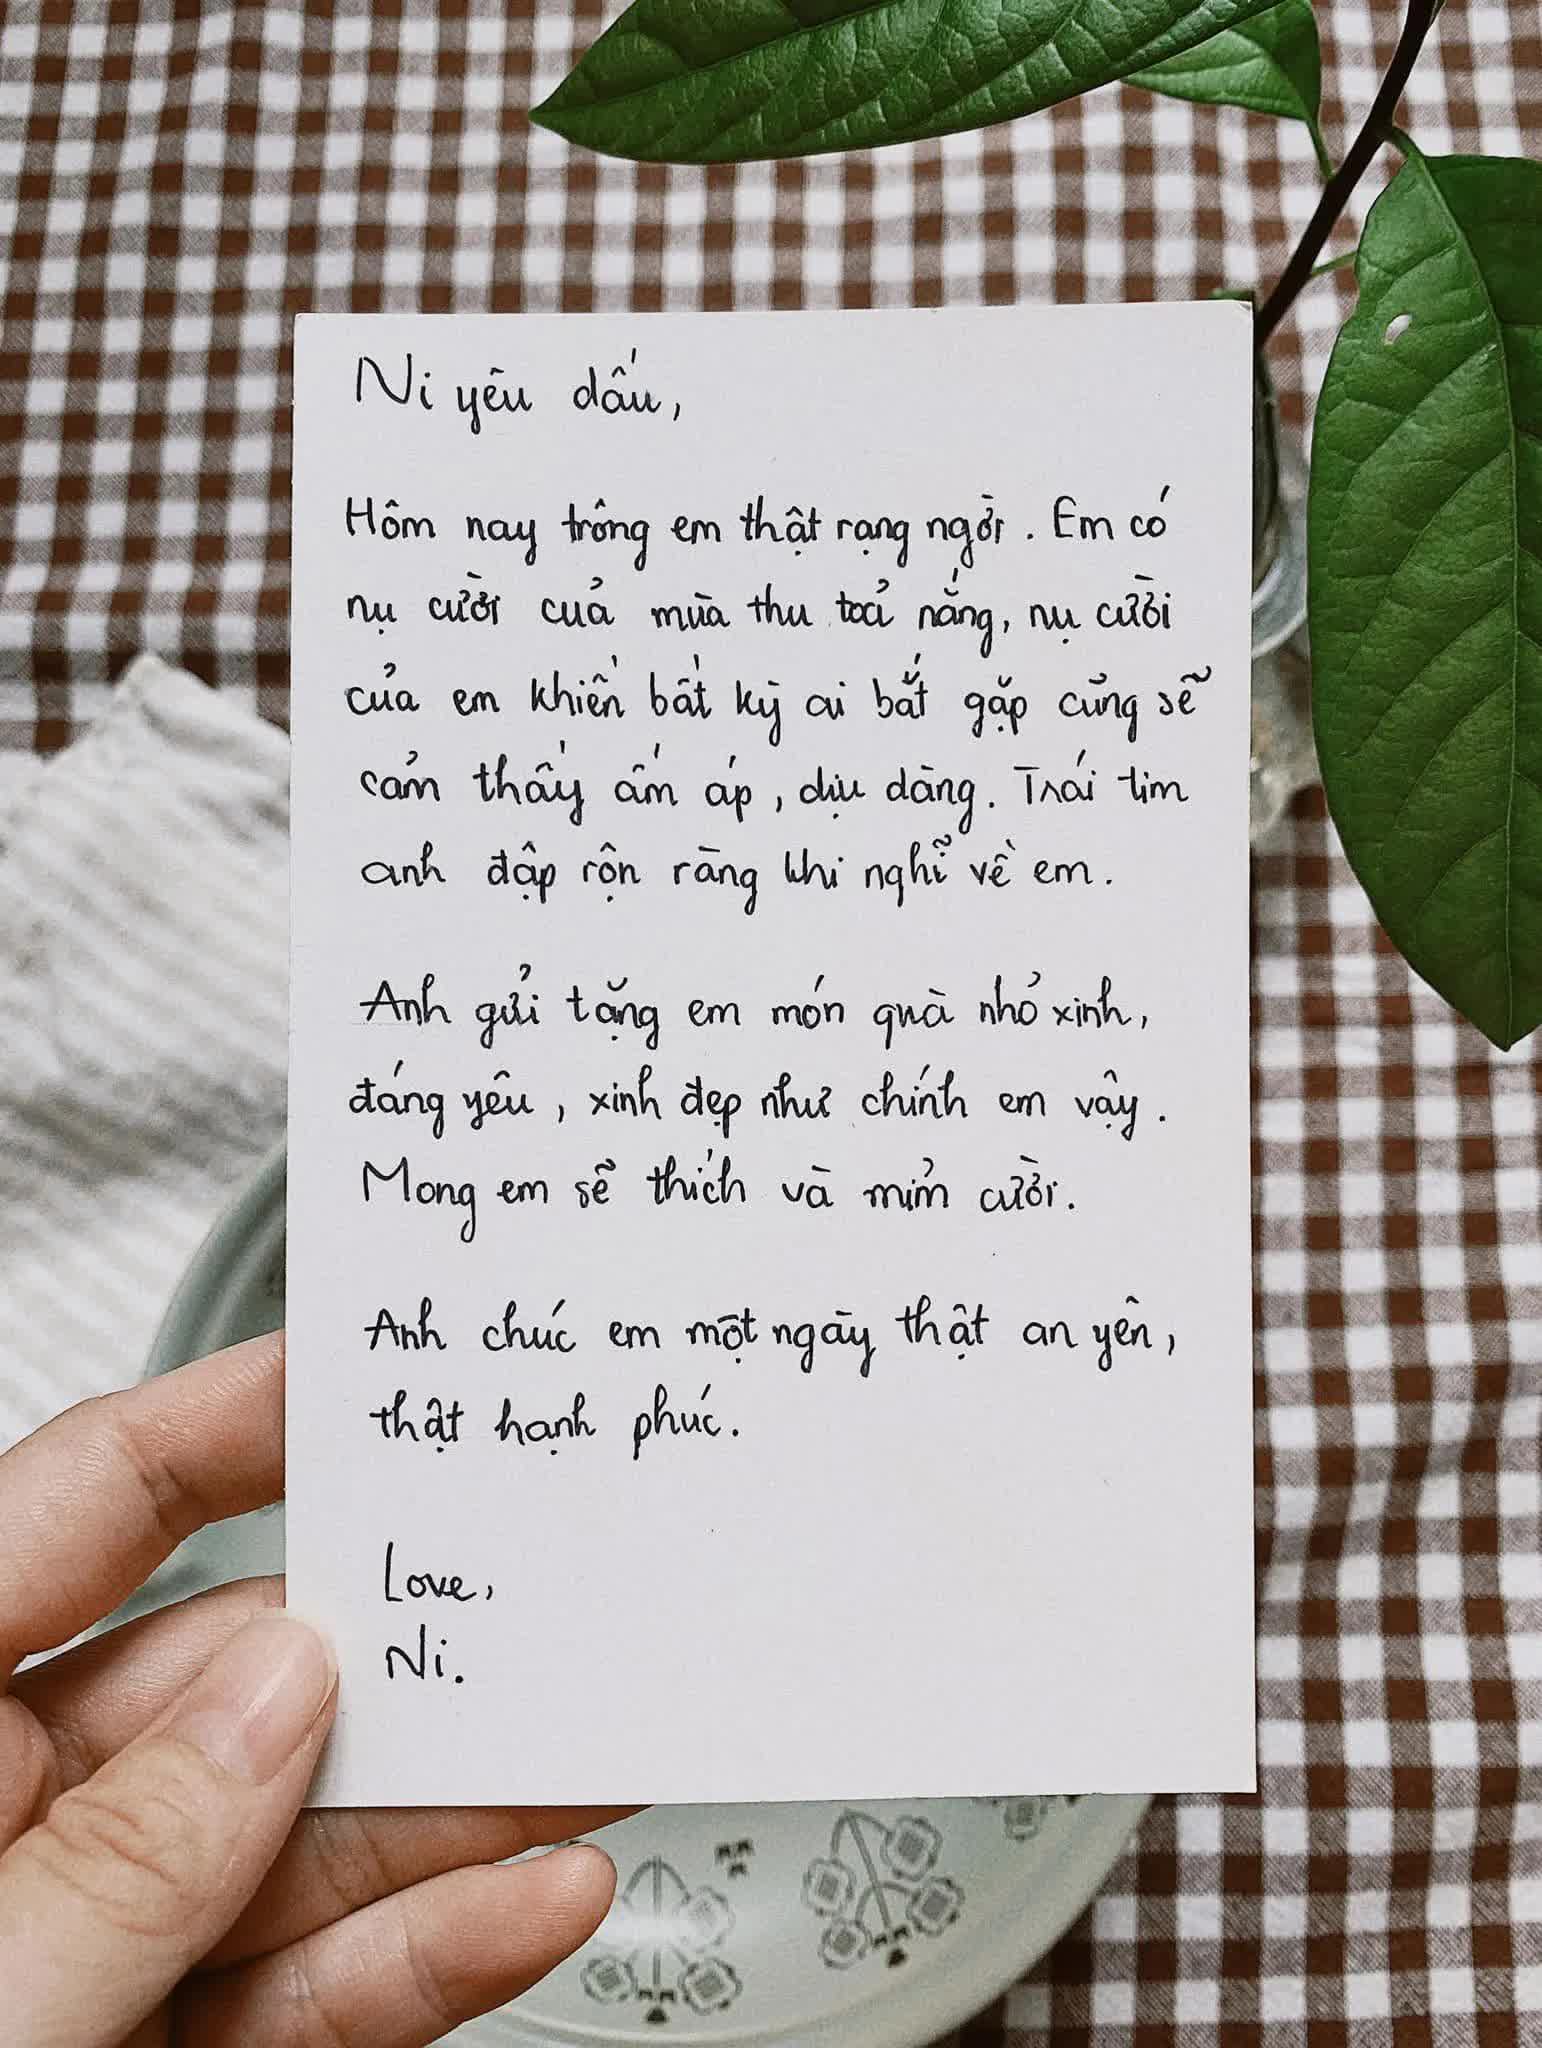 Ni yêu dấu,
Hôm nay trông em thật rạng ngời. Em có
nụ cười của mùa thu toả nắng, nụ cười
của em khiến bất kỳ ai bắt gặp cũng sẽ
cảm thấy ấm áp, dịu dàng. Trái tim
anh đập rộn ràng khi nghĩ về em.
Anh gửi tặng em món quà nhỏ xinh,
đáng yêu, xinh đẹp như chính em vậy.
Mong em sẽ thích và mỉm cười.
Anh chúc em một ngày thật an yên,
thật hạnh phúc.
Love,
Ni.